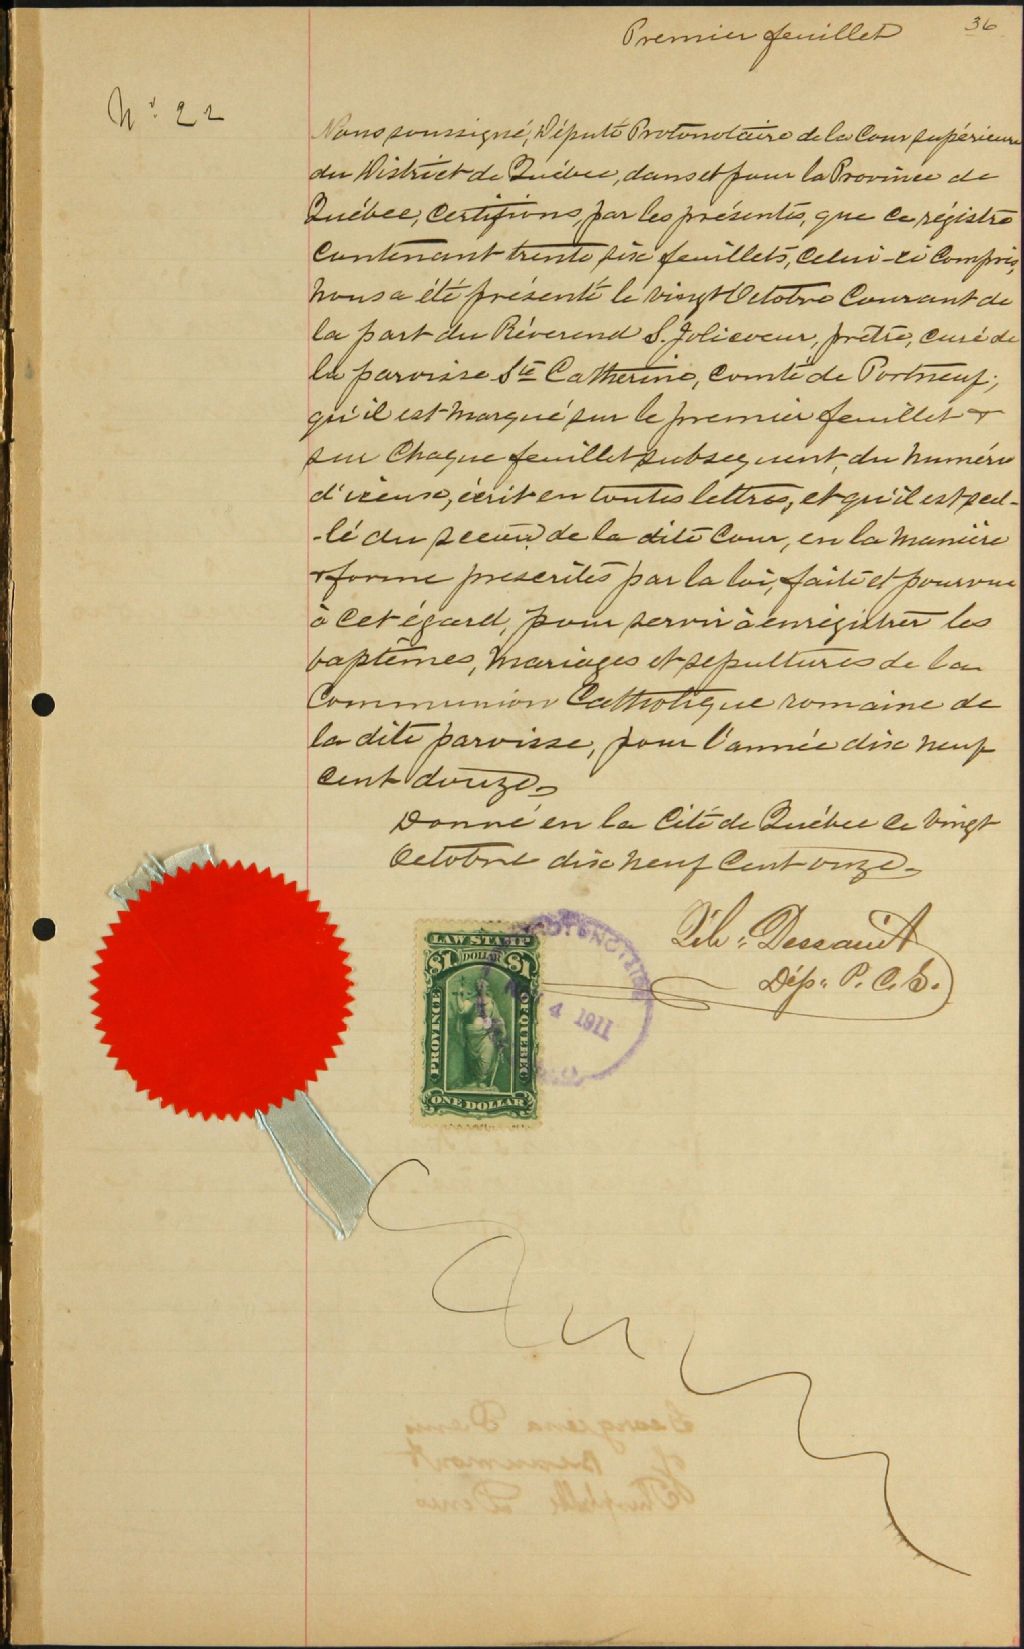 Premier feuillet
36
No. 22
Nous soussigné, Député Protonotaire de la Cour supérieure
du District de Québec, dans et pour la Province de
Québec, Certifions, par les présentes, que ce régistre
Contenant trente six feuillets, Celui-ci Compris,
nous a été présenté le vingt Octobre Courant de
la part du Révérend S. Jolicoeur, prêtre, curé de
la paroisse Ste Catherine, comté de Portneuf;
qu'il est marqué sur le premier feuillet &
sur Chaque feuillet subsequent, du numéro
d'iceux, écrit en toutes lettres, et qu'il est scel-
-lé du sceau de la dite Cour, en la manière
& forme prescrites par la loi, faite et pourvue
à cet égard, pour servir à enrégistrer les
baptêmes, mariages et sepultures de la
Communion Catholique romaine de
la dite paroisse, pour l'année dix neuf
Cent douze.
Donné en la Cité de Québec ce vingt
Octobre dix neuf Cent onze.
Dessault
Dép. P. C. S.
LAW STAMP
$1 DOLLAR $1
PROVINCE OF QUEBEC
ONE DOLLAR
4 1911